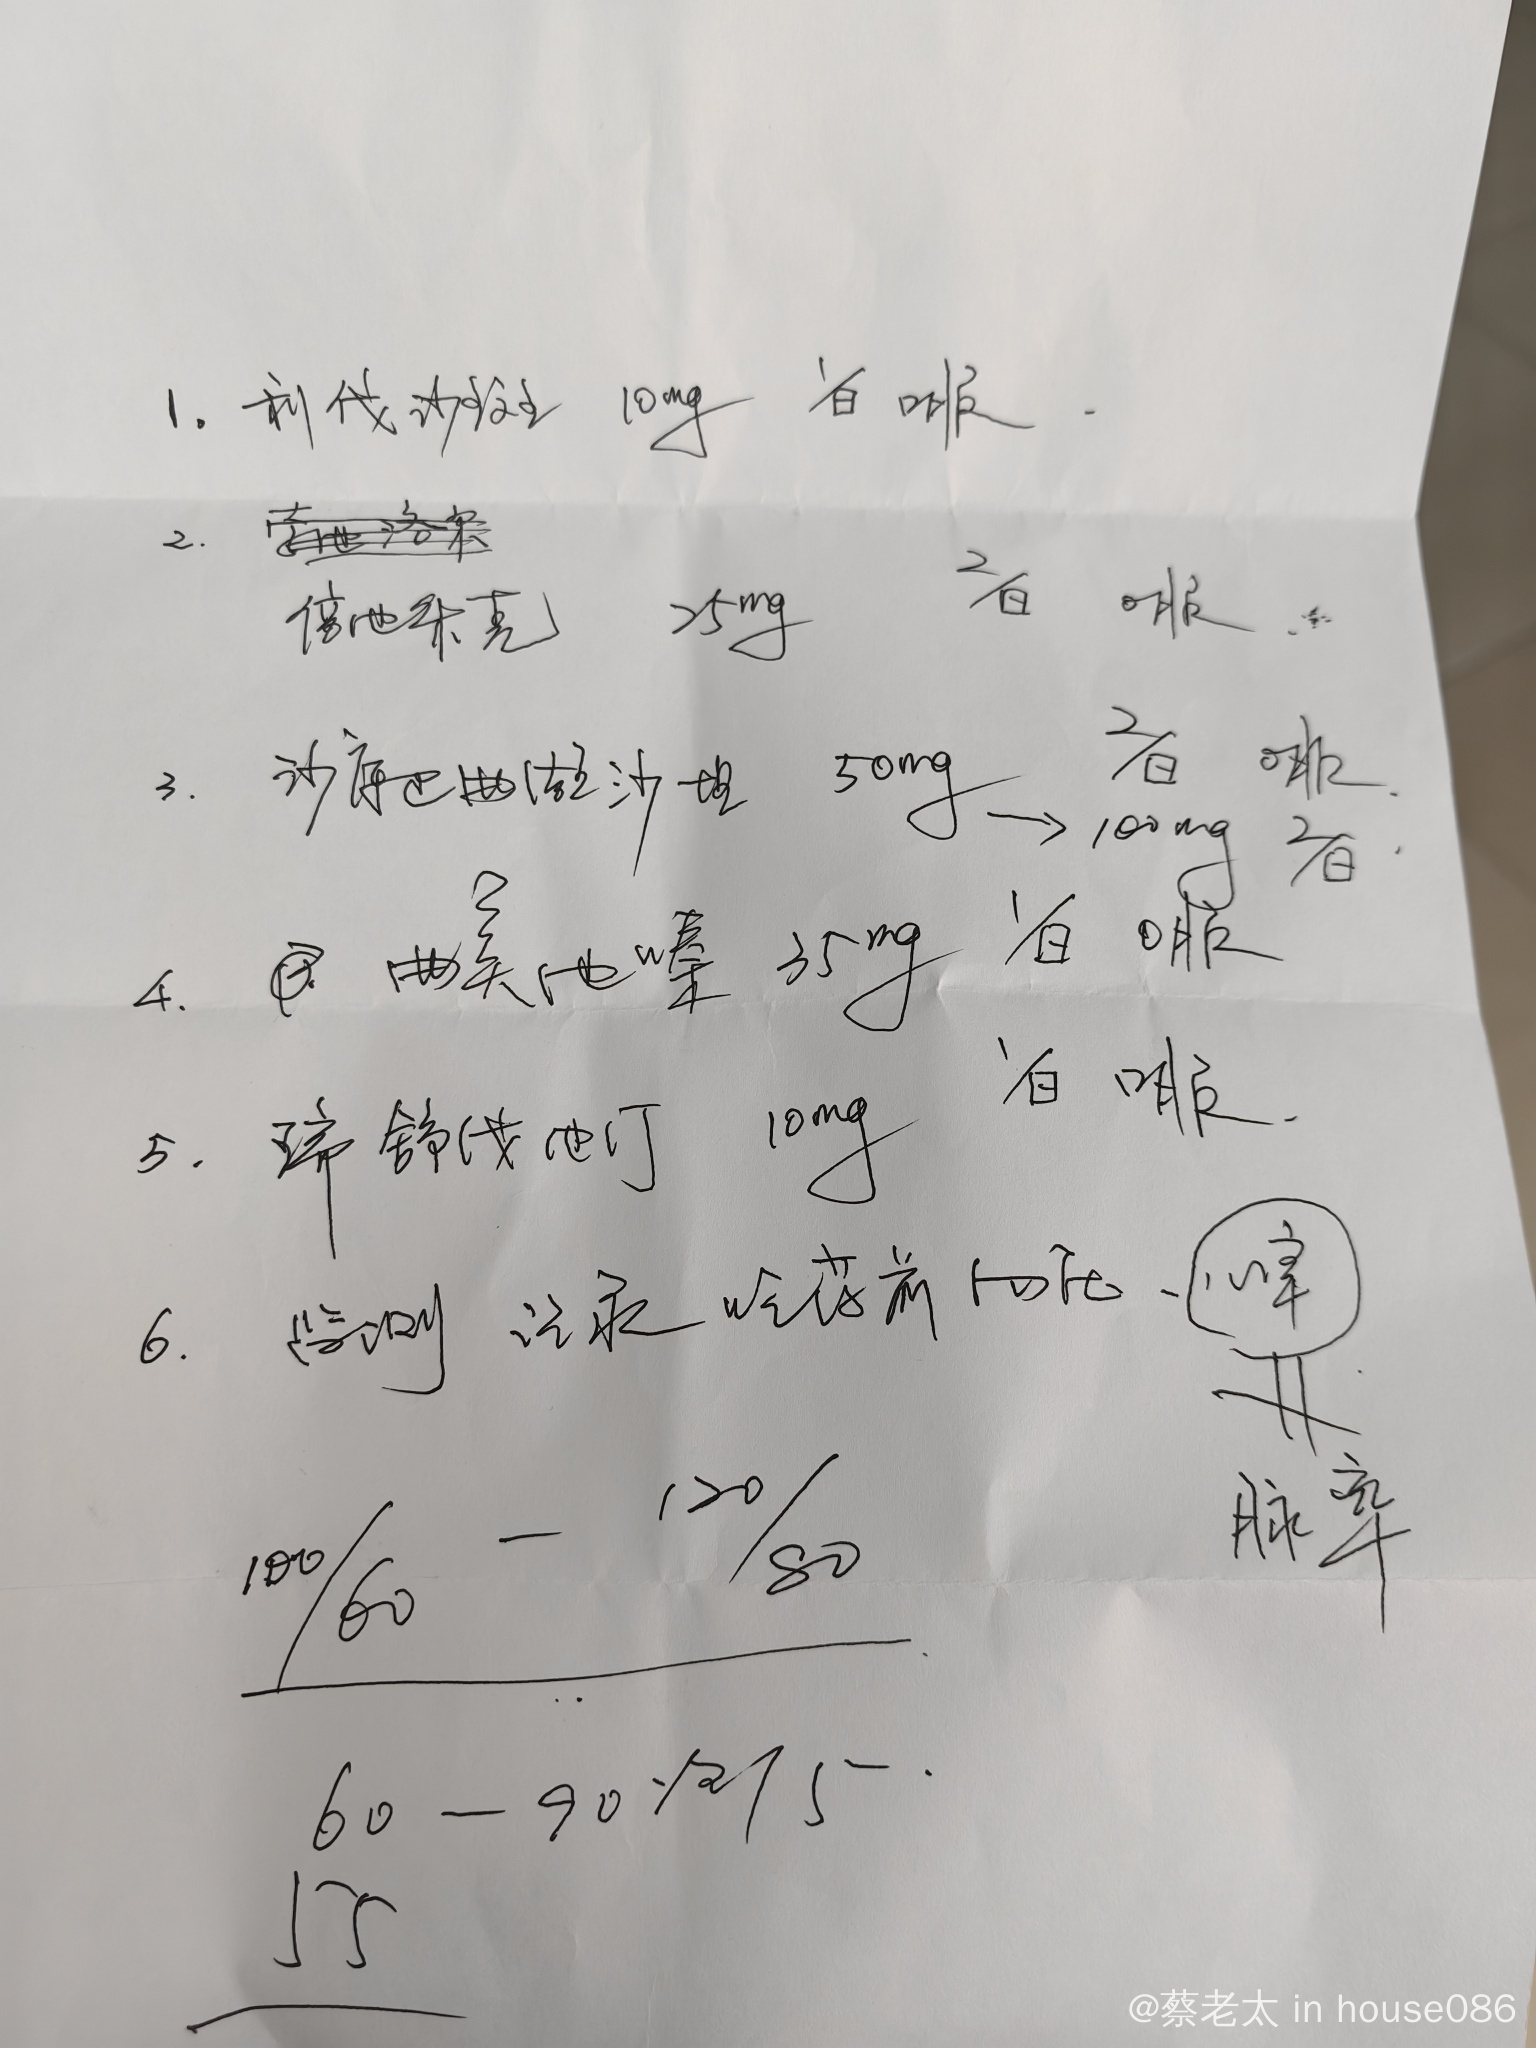 1. 利伐沙班 10mg 1/日 口服.
2.
倍他乐克 25mg 2/日 口服.
3. 沙库巴曲缬沙坦 50mg 2/日 口服.
→ 100mg 2/日.
4. 曲美他嗪 35mg 1/日 口服
5. 瑞舒伐他汀 10mg 1/日 口服.
6. 监测 记录 吃药前 血压、心率
脉率
100/60 — 120/80
60 — 90次/分.
55
@蔡老太 in house086